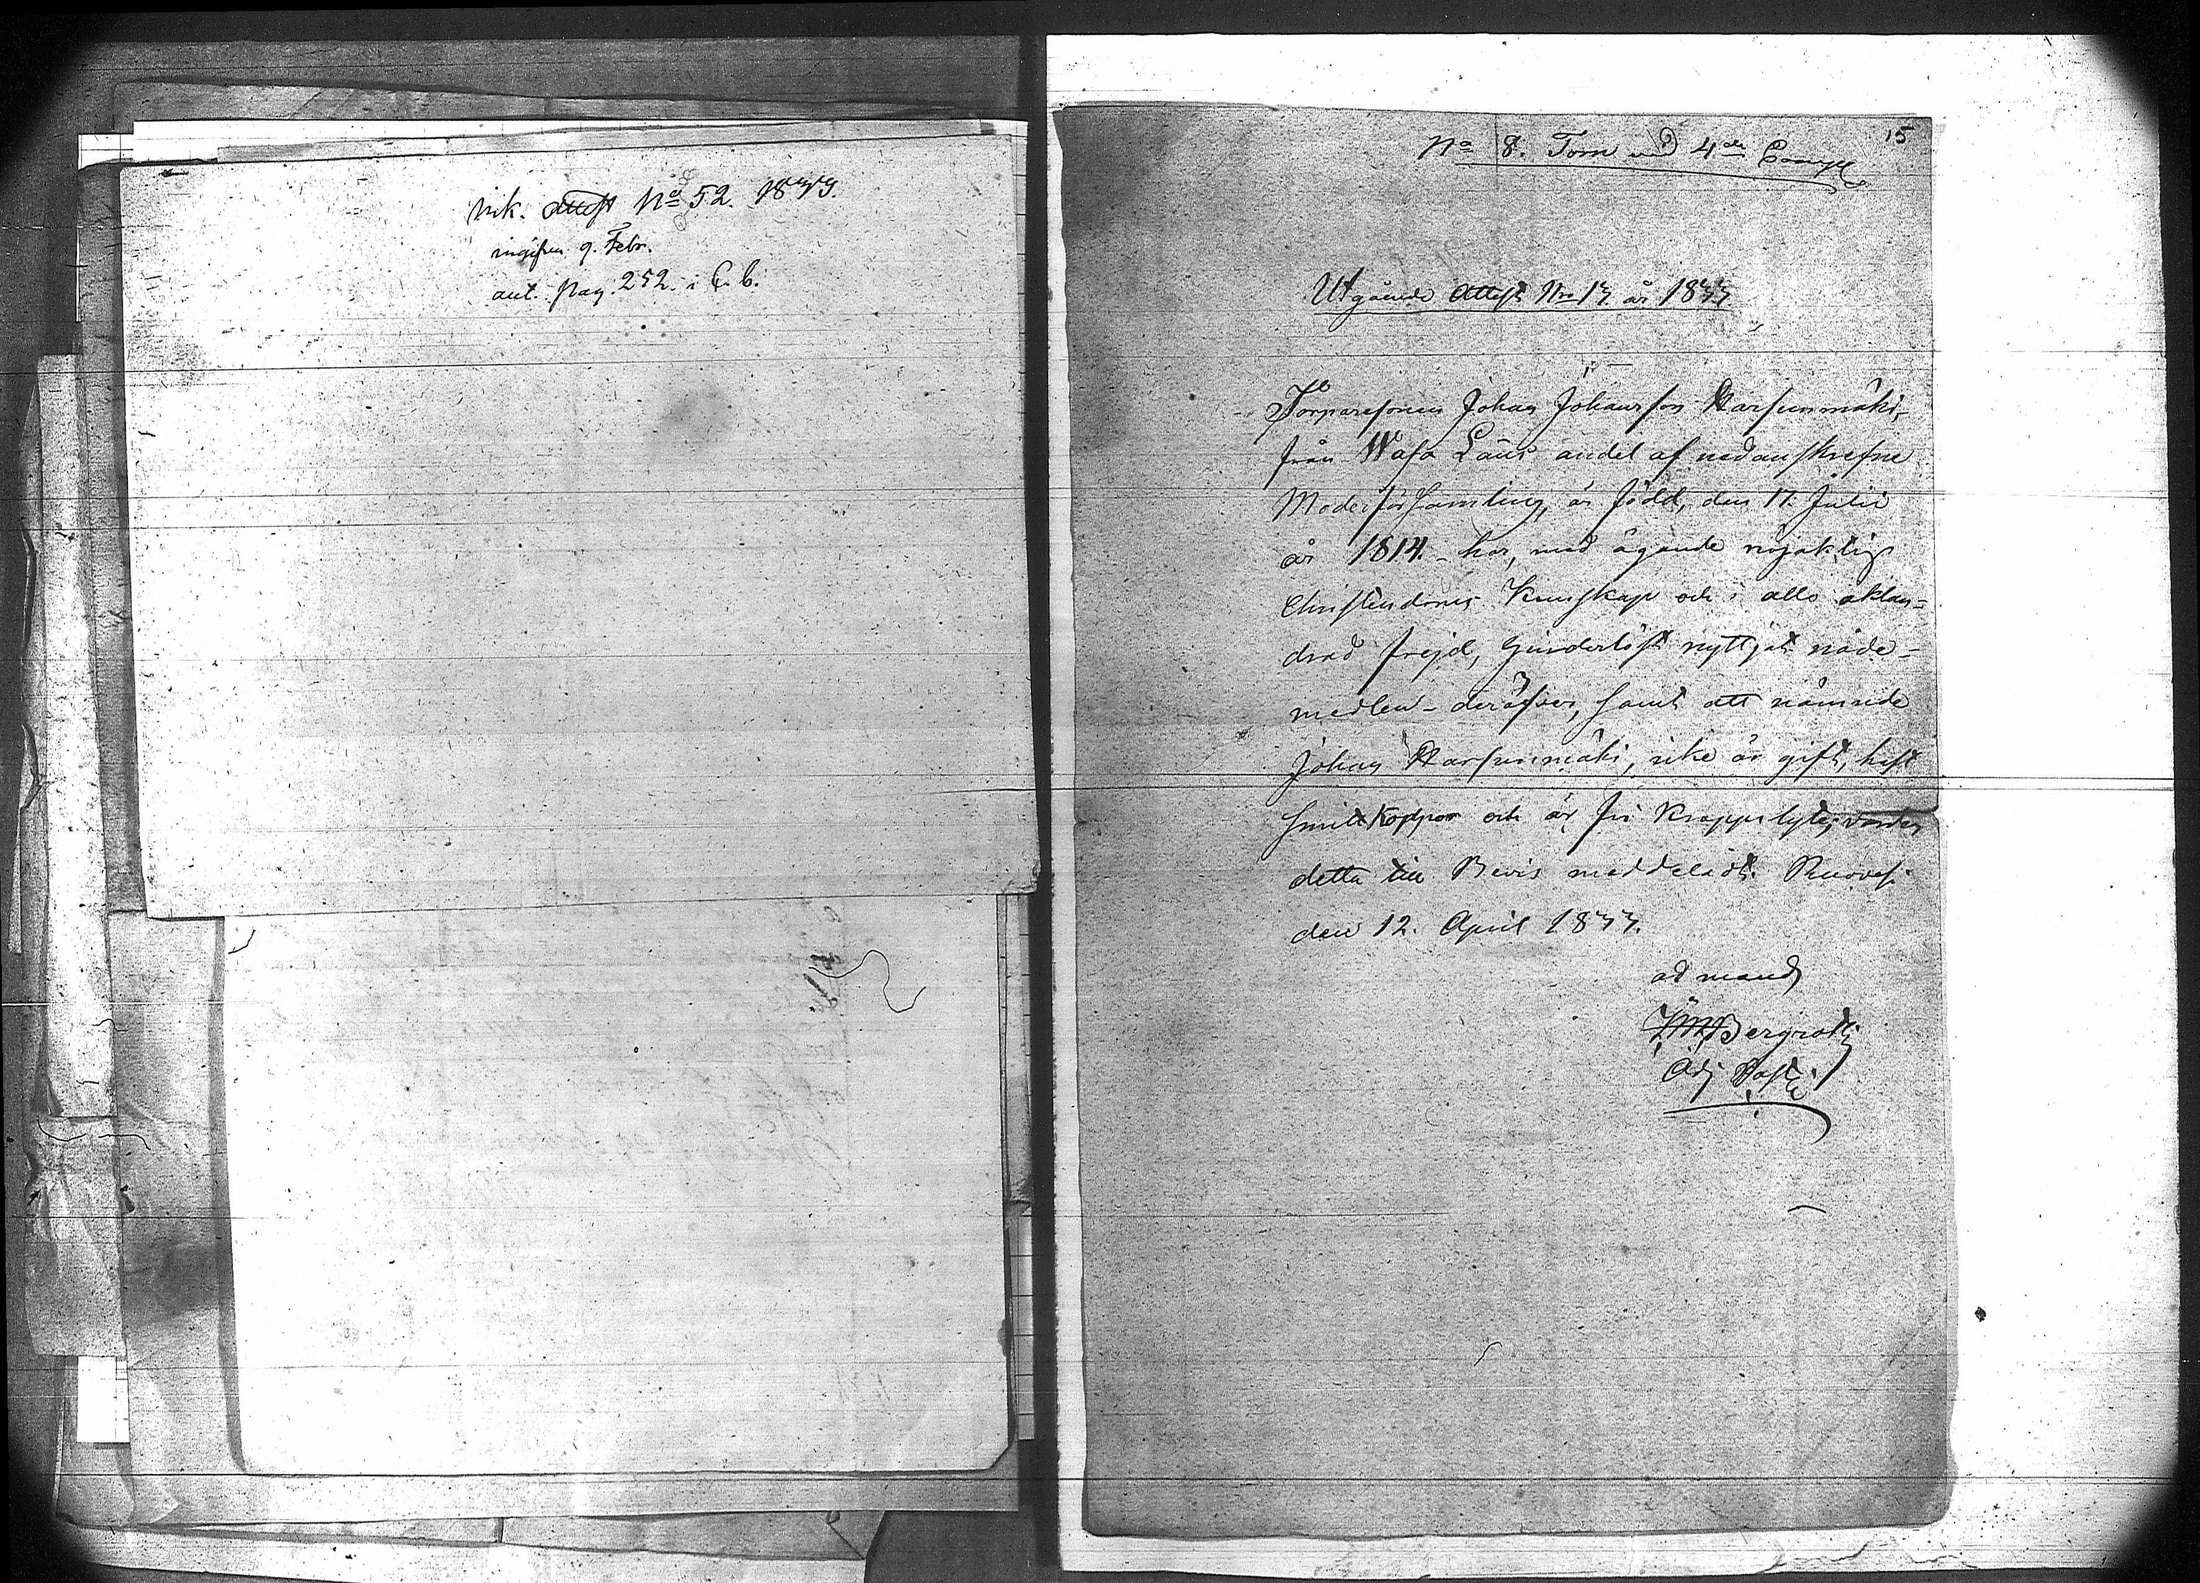 ink. attest No 52. 1833.
ingifven 9. Febr.
ant. pag. 252. i C. b.
15
No 8. Torn vid 4de Comp
Utgående Attest No 13 år 1833
Torparesonen Johan Johansson Karsunmäki,
från Wasa Läns andel af nedanskrefne
Moderförsamling, är född, den 17. Julii
år 1814. har, med ägande nöjaktig
Christendoms Kunskap och i allo oklan-
drad frejd, hinderlöst nyttjat nåde-
medlen derstädes, samt att nämnde
Johan Karsunmäki, icke är gift, haft
Smittkoppor och är fri Kroppslyte; varder
detta till Bevis meddeladt. Ruovesi
den 12. April 1833.
ad mand
Bergroth
Adj Past: